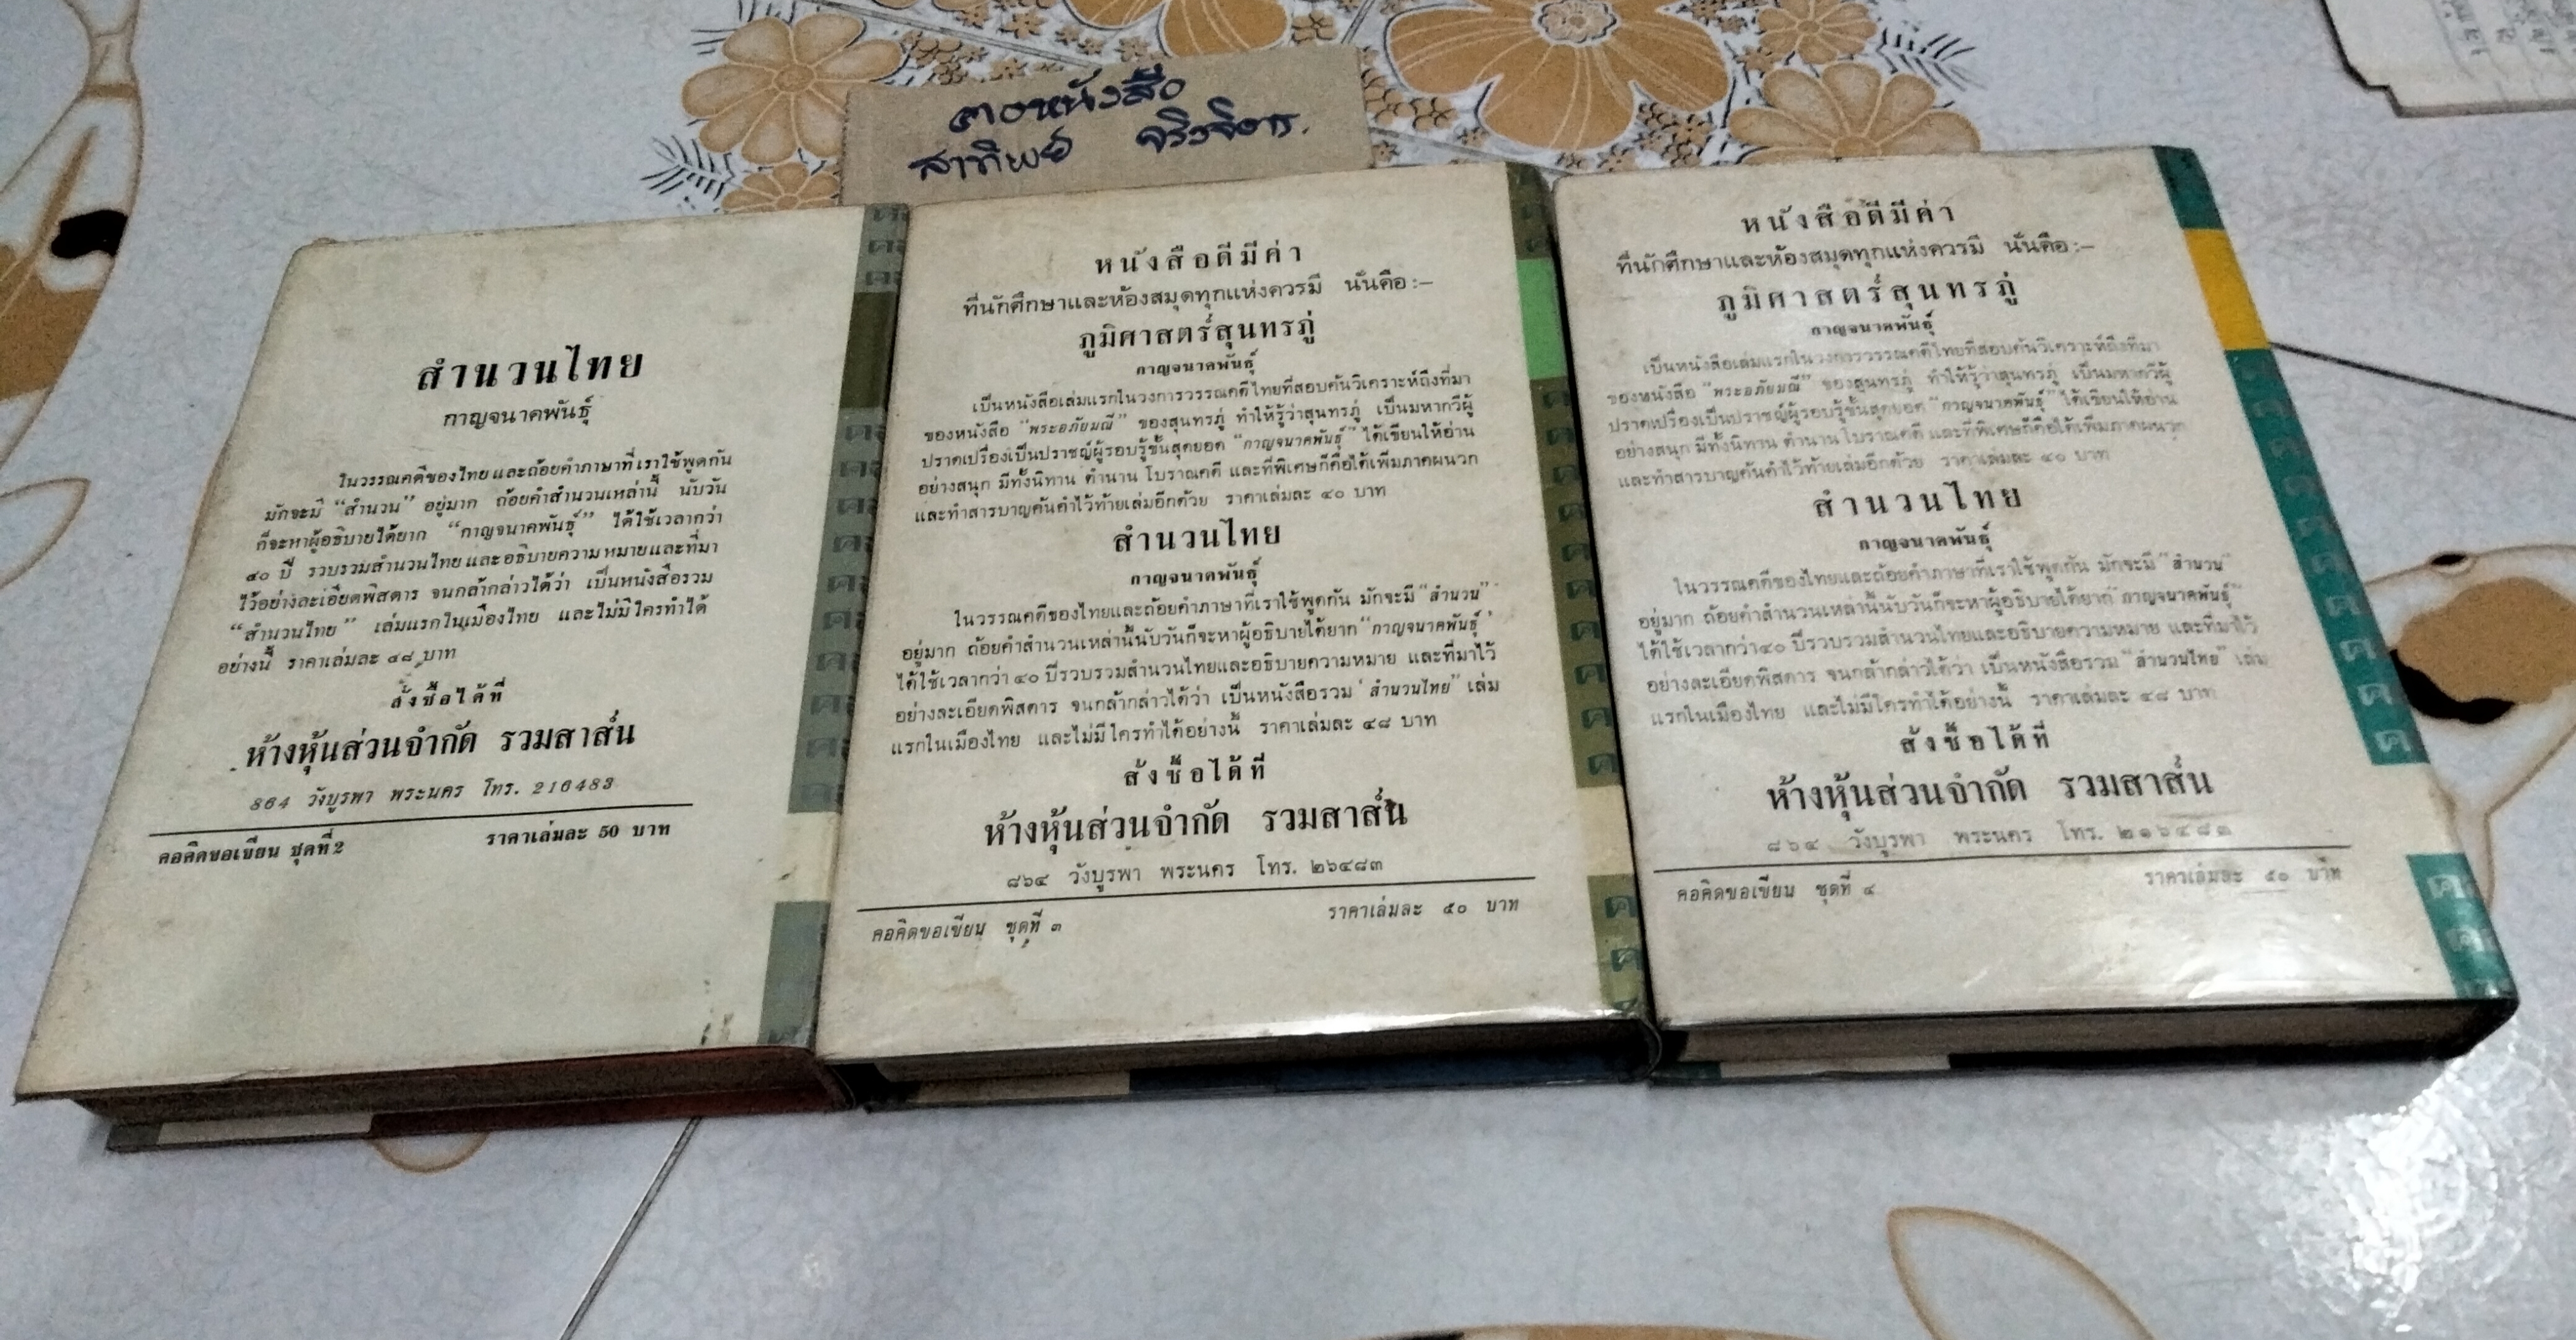 กองหนังสือ
สาทิพย์ จริงจิตร.
สำนวนไทย
กาญจนาคพันธุ์
ในวรรณคดีของไทย และถ้อยคำภาษาที่ เราใช้พูดกัน
มักจะมี “สำนวน” อยู่มาก ถ้อยคำสำนวนเหล่านี้ นับวัน
ก็จะหาผู้อธิบายได้ยาก “กาญจนาคพันธุ์” ได้ใช้เวลากว่า
๔๐ ปี รวบรวมสำนวนไทย และอธิบายความหมายและที่มา
ไว้อย่างละเอียดพิสดาร จนกล้ากล่าวได้ว่า เป็นหนังสือรวม
“สำนวนไทย” เล่มแรกในเมืองไทย และไม่มีใครทำได้
อย่างนี้ ราคาเล่มละ ๔๘ บาท
สั่งซื้อได้ที่
ห้างหุ้นส่วนจำกัด รวมสาส์น
864 วังบูรพา พระนคร โทร. 216483
คอคิดขอเขียน ชุดที่ 2 ราคาเล่มละ 50 บาท
หนังสือดีมีค่า
ที่นักศึกษาและห้องสมุดทุกแห่งควรมี นั่นคือ :–
ภูมิศาสตร์สุนทรภู่
กาญจนาคพันธุ์
เป็นหนังสือเล่มแรกในวงการวรรณคดีไทยที่สอบค้นวิเคราะห์ถึงที่มา
ของหนังสือ “พระอภัยมณี” ของสุนทรภู่ ทำให้รู้ว่าสุนทรภู่ เป็นมหากวีผู้
ปราดเปรื่องเป็นปราชญ์ผู้รอบรู้ชั้นสุดยอด “กาญจนาคพันธุ์” ได้เขียนให้อ่าน
อย่างสนุก มีทั้งนิทาน ตำนาน โบราณคดี และที่พิเศษก็คือได้เพิ่มภาคผนวก
และทำสารบาญค้นคำไว้ท้ายเล่มอีกด้วย ราคาเล่มละ ๔๐ บาท
สำนวนไทย
กาญจนาคพันธุ์
ในวรรณคดีของไทยและถ้อยคำภาษาที่เราใช้พูดกัน มักจะมี “สำนวน”
อยู่มาก ถ้อยคำสำนวนเหล่านี้นับวันก็จะหาผู้อธิบายได้ยาก “กาญจนาคพันธุ์ ’
ได้ใช้เวลากว่า ๔๐ ปีรวบรวมสำนวนไทยและอธิบายความหมาย และที่มาไว้
อย่างละเอียดพิสดาร จนกล้ากล่าวได้ว่า เป็นหนังสือรวม ‘ สำนวนไทย” เล่ม
แรกในเมืองไทย และไม่มีใครทำได้อย่างนี้ ราคาเล่มละ ๔๘ บาท
สั่งซื้อได้ที่
ห้างหุ้นส่วนจำกัด รวมสาส์น
๘๖๔ วังบูรพา พระนคร โทร. ๒๖๔๘๓
คอคิดขอเขียน ชุดที่ ๓ ราคาเล่มละ ๕๐ บาท
หนังสือดีมีค่า
ที่นักศึกษาและห้องสมุดทุกแห่งควรมี นั่นคือ :–
ภูมิศาสตร์สุนทรภู่
กาญจนาคพันธุ์
เป็นหนังสือเล่มแรกในวงการวรรณคดีไทยที่สอบค้นวิเคราะห์ถึงที่มา
ของหนังสือ “พระอภัยมณี” ของสุนทรภู่ ทำให้รู้ว่าสุนทรภู่ เป็นมหากวีผู้
ปราดเปรื่องเป็นปราชญ์ผู้รอบรู้ชั้นสุดยอด “กาญจนาคพันธุ์” ได้เขียนให้อ่าน
อย่างสนุก มีทั้งนิทาน ตำนาน โบราณคดี และที่พิเศษก็คือได้เพิ่มภาคผนวก
และทำสารบาญค้นคำไว้ท้ายเล่มอีกด้วย ราคาเล่มละ ๔๐ บาท
สำนวนไทย
กาญจนาคพันธุ์
ในวรรณคดีของไทยและถ้อยคำภาษาที่เราใช้พูดกัน มักจะมี “สำนวน”
อยู่มาก ถ้อยคำสำนวนเหล่านี้นับวันก็จะหาผู้อธิบายได้ยาก “กาญจนาคพันธุ์”
ได้ใช้เวลากว่า ๔๐ ปีรวบรวมสำนวนไทยและอธิบายความหมาย และที่มาไว้
อย่างละเอียดพิสดาร จนกล้ากล่าวได้ว่า เป็นหนังสือรวม “สำนวนไทย” เล่ม
แรกในเมืองไทย และไม่มีใครทำได้อย่างนี้ ราคาเล่มละ ๔๘ บาท
สั่งซื้อได้ที่
ห้างหุ้นส่วนจำกัด รวมสาส์น
๘๖๔ วังบูรพา พระนคร โทร. ๒๑๖๔๘๓
คอคิดขอเขียน ชุดที่ ๔ ราคาเล่มละ ๕๐ บาท